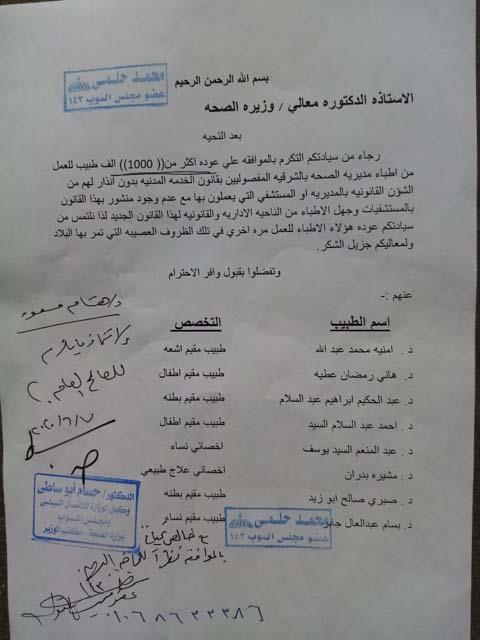 محمد حلمى
عضو مجلس النوب ١٤٣
بسم الله الرحمن الرحيم
الاستاذه الدكتوره معالي / وزيره الصحه
بعد التحيه
رجاء من سيادتكم التكرم بالموافقه علي عوده اكثر من(( 1000)) الف طبيب للعمل
من اطباء مديريه الصحه بالشرقيه المفصولين بقانون الخدمه المدنيه بدون أنذار لهم من
الشؤن القانونيه بالمديريه او المستشفي التي يعملون بها مع عدم وجود منشور بهذا القانون
بالمستشفيات وجهل الاطباء من الناحيه الاداريه والقانونيه لهذا القانون الجديد لذا نلتمس من
سيادتكم عوده هؤلاء الاطباء للعمل مره اخري في تلك الظروف العصيبه التي تمر بها البلاد
ولمعاليكم جزيل الشكر.
وتفضلوا بقبول وافر الاحترام
عنهم :-
اسم الطبيب التخصص
د . امنيه محمد عبد الله طبيب مقيم اشعه
د. هاني رمضان عطيه طبيب مقيم اطفال
د. عبد الحكيم ابراهيم عبد السلام طبيب مقيم بطنه
د. احمد عبد السلام السيد طبيب مقيم اطفال
د. عبد المنعم السيد يوسف اخصائي نساء
د. مشيره بدران اخصائي علاج طبيعي
د. صبري صالح ابو زيد طبيب مقيم بطنه
د. بسام عبدالعال جابر طبيب مقيم نساء
محمد حلمى
عضو مجلس النوب ١٤٣
د/هشام مسعود
٢٠٢٠/٦/٧
الدكتور/ حسام أبو ساطى
وكيل الوزارة للاتصال السياسى
ومجلس النواب
وزارة الصحة - مكتب الوزير